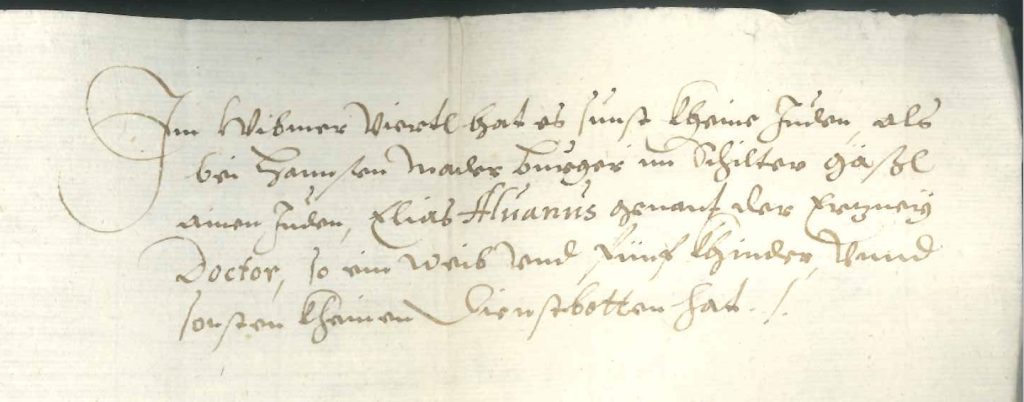 Im Widmer Viertl hat es sunst kheine Juden, als
bei Hannsen Mader burger im Schilter gäßl
ainen Juden, Elias Aluanus genant der Erzney
Doctor, so ein weib vnd fünf khinder, vnnd
sonsten kheinen Dienstbotten hat ./.